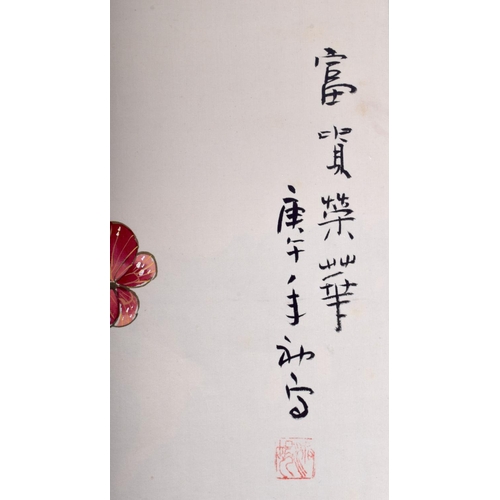 富貴榮華
庚午年初写